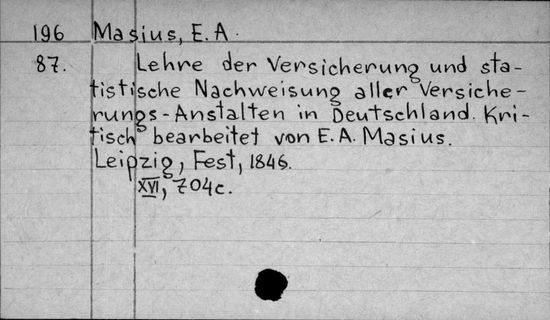 196 Masius, E. A.
87. Lehre der Versicherung und sta-
tistische Nachweisung aller Versiche-
rungs-Anstalten in Deutschland. Kri-
tisch bearbeitet von E. A. Masius.
Leipzig, Fest, 1846.
XVI, 704c.